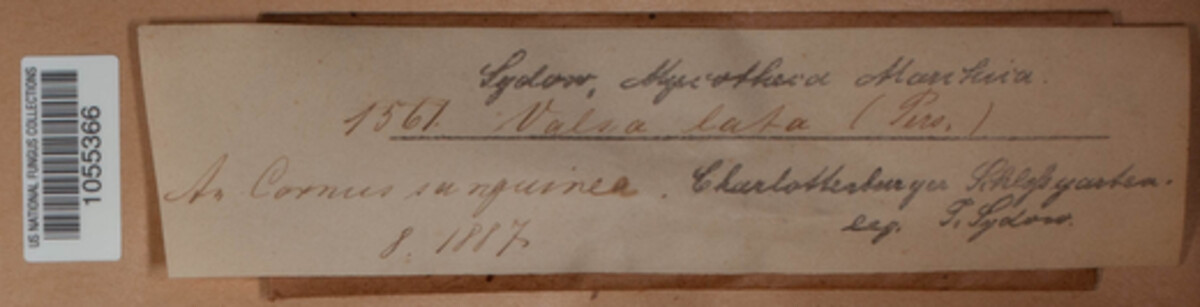 US NATIONAL FUNGUS COLLECTIONS
1055366
Sydow, Mycotheca Marchica.
1561. Valsa lata (Pers.)
An Cornus sanguinea. Charlottenburger Schloßgarten.
8. 1887. leg. P. Sydow.